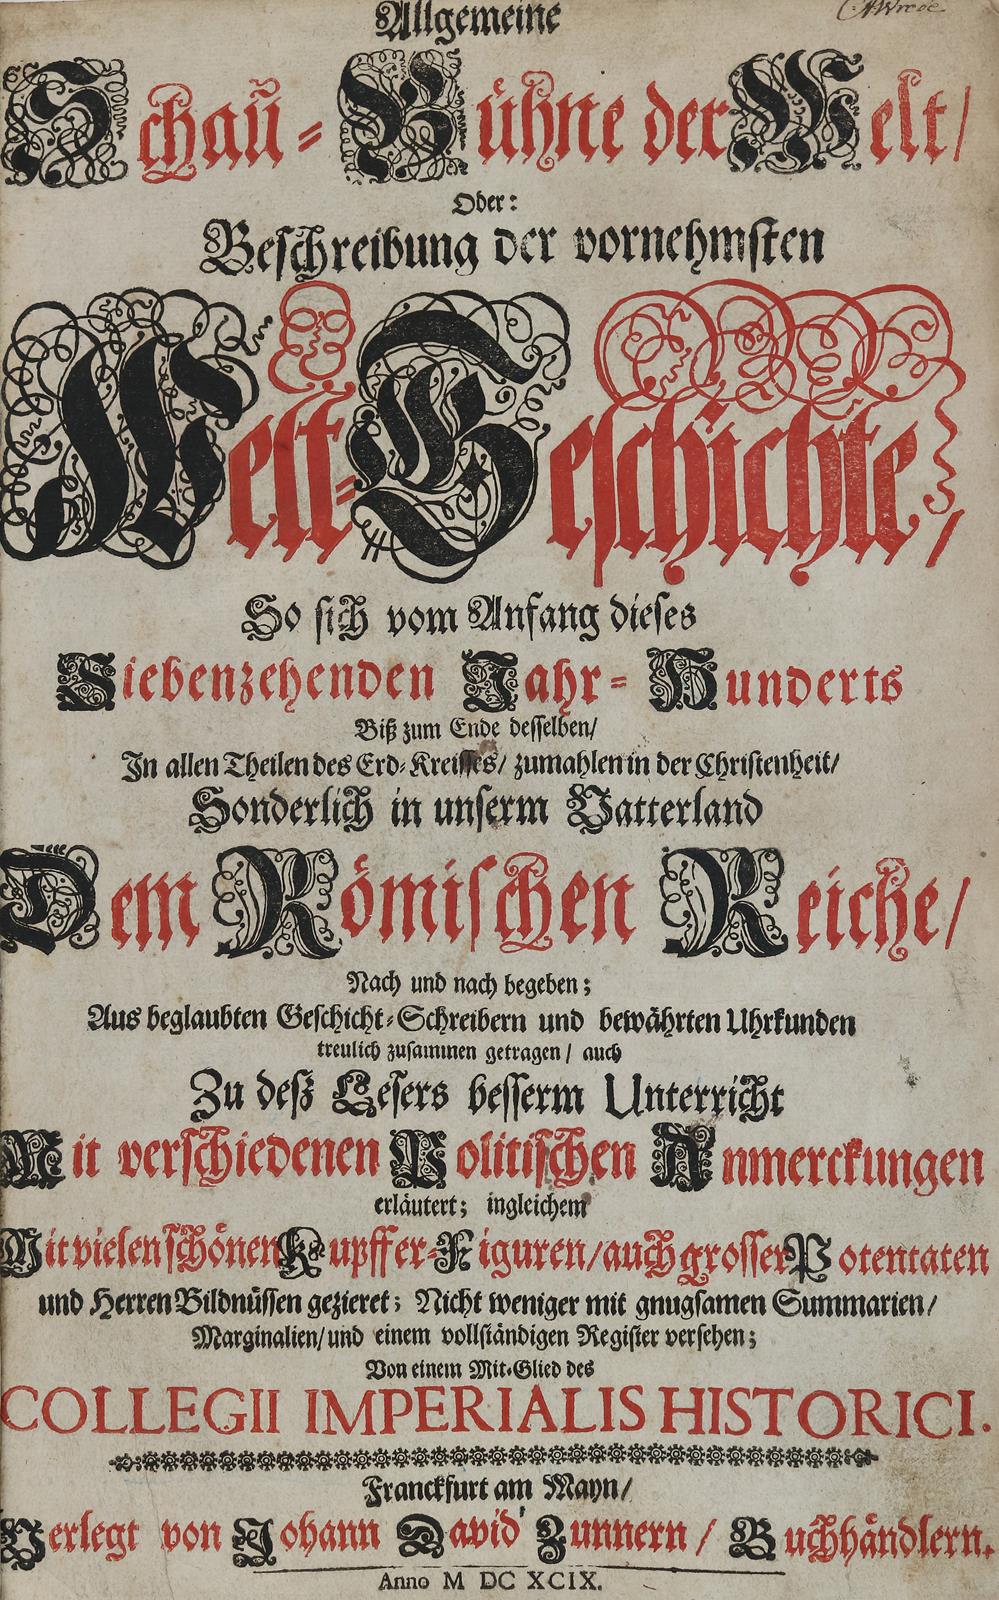 Allgemeine
Schaŭ-Bühne der Welt/
Oder:
Beschreibung der vornehmsten
Welt-Geschichte/
So sich vom Anfang dieses
Siebenzehenden Jahr-Hunderts
Biß zum Ende desselben/
In allen Theilen des Erd-Kreisses/ zumahlen in der Christenheit/
Sonderlich in unserm Vatterland
Dem Römischen Reiche/
Nach und nach begeben;
Aus beglaubten Geschicht-Schreibern und bewährten Uhrkunden
treulich zusammen getragen/ auch
Zu deß Lesers besserm Unterricht
Mit verschiedenen Politischen Anmerckungen
erläutert; ingleichem
Mit vielen schönen Kupffer-Figuren/ auch grosser Potentaten
und Herren Bildnüssen gezieret; Nicht weniger mit gnugsamen Summarien/
Marginalien/ und einem vollständigen Register versehen;
Von einem Mit-Glied des
COLLEGII IMPERIALIS HISTORICI.
Franckfurt am Mayn/
Verlegt von Johann David Zunnern/ Buchhändlern.
Anno M DC XCIX.